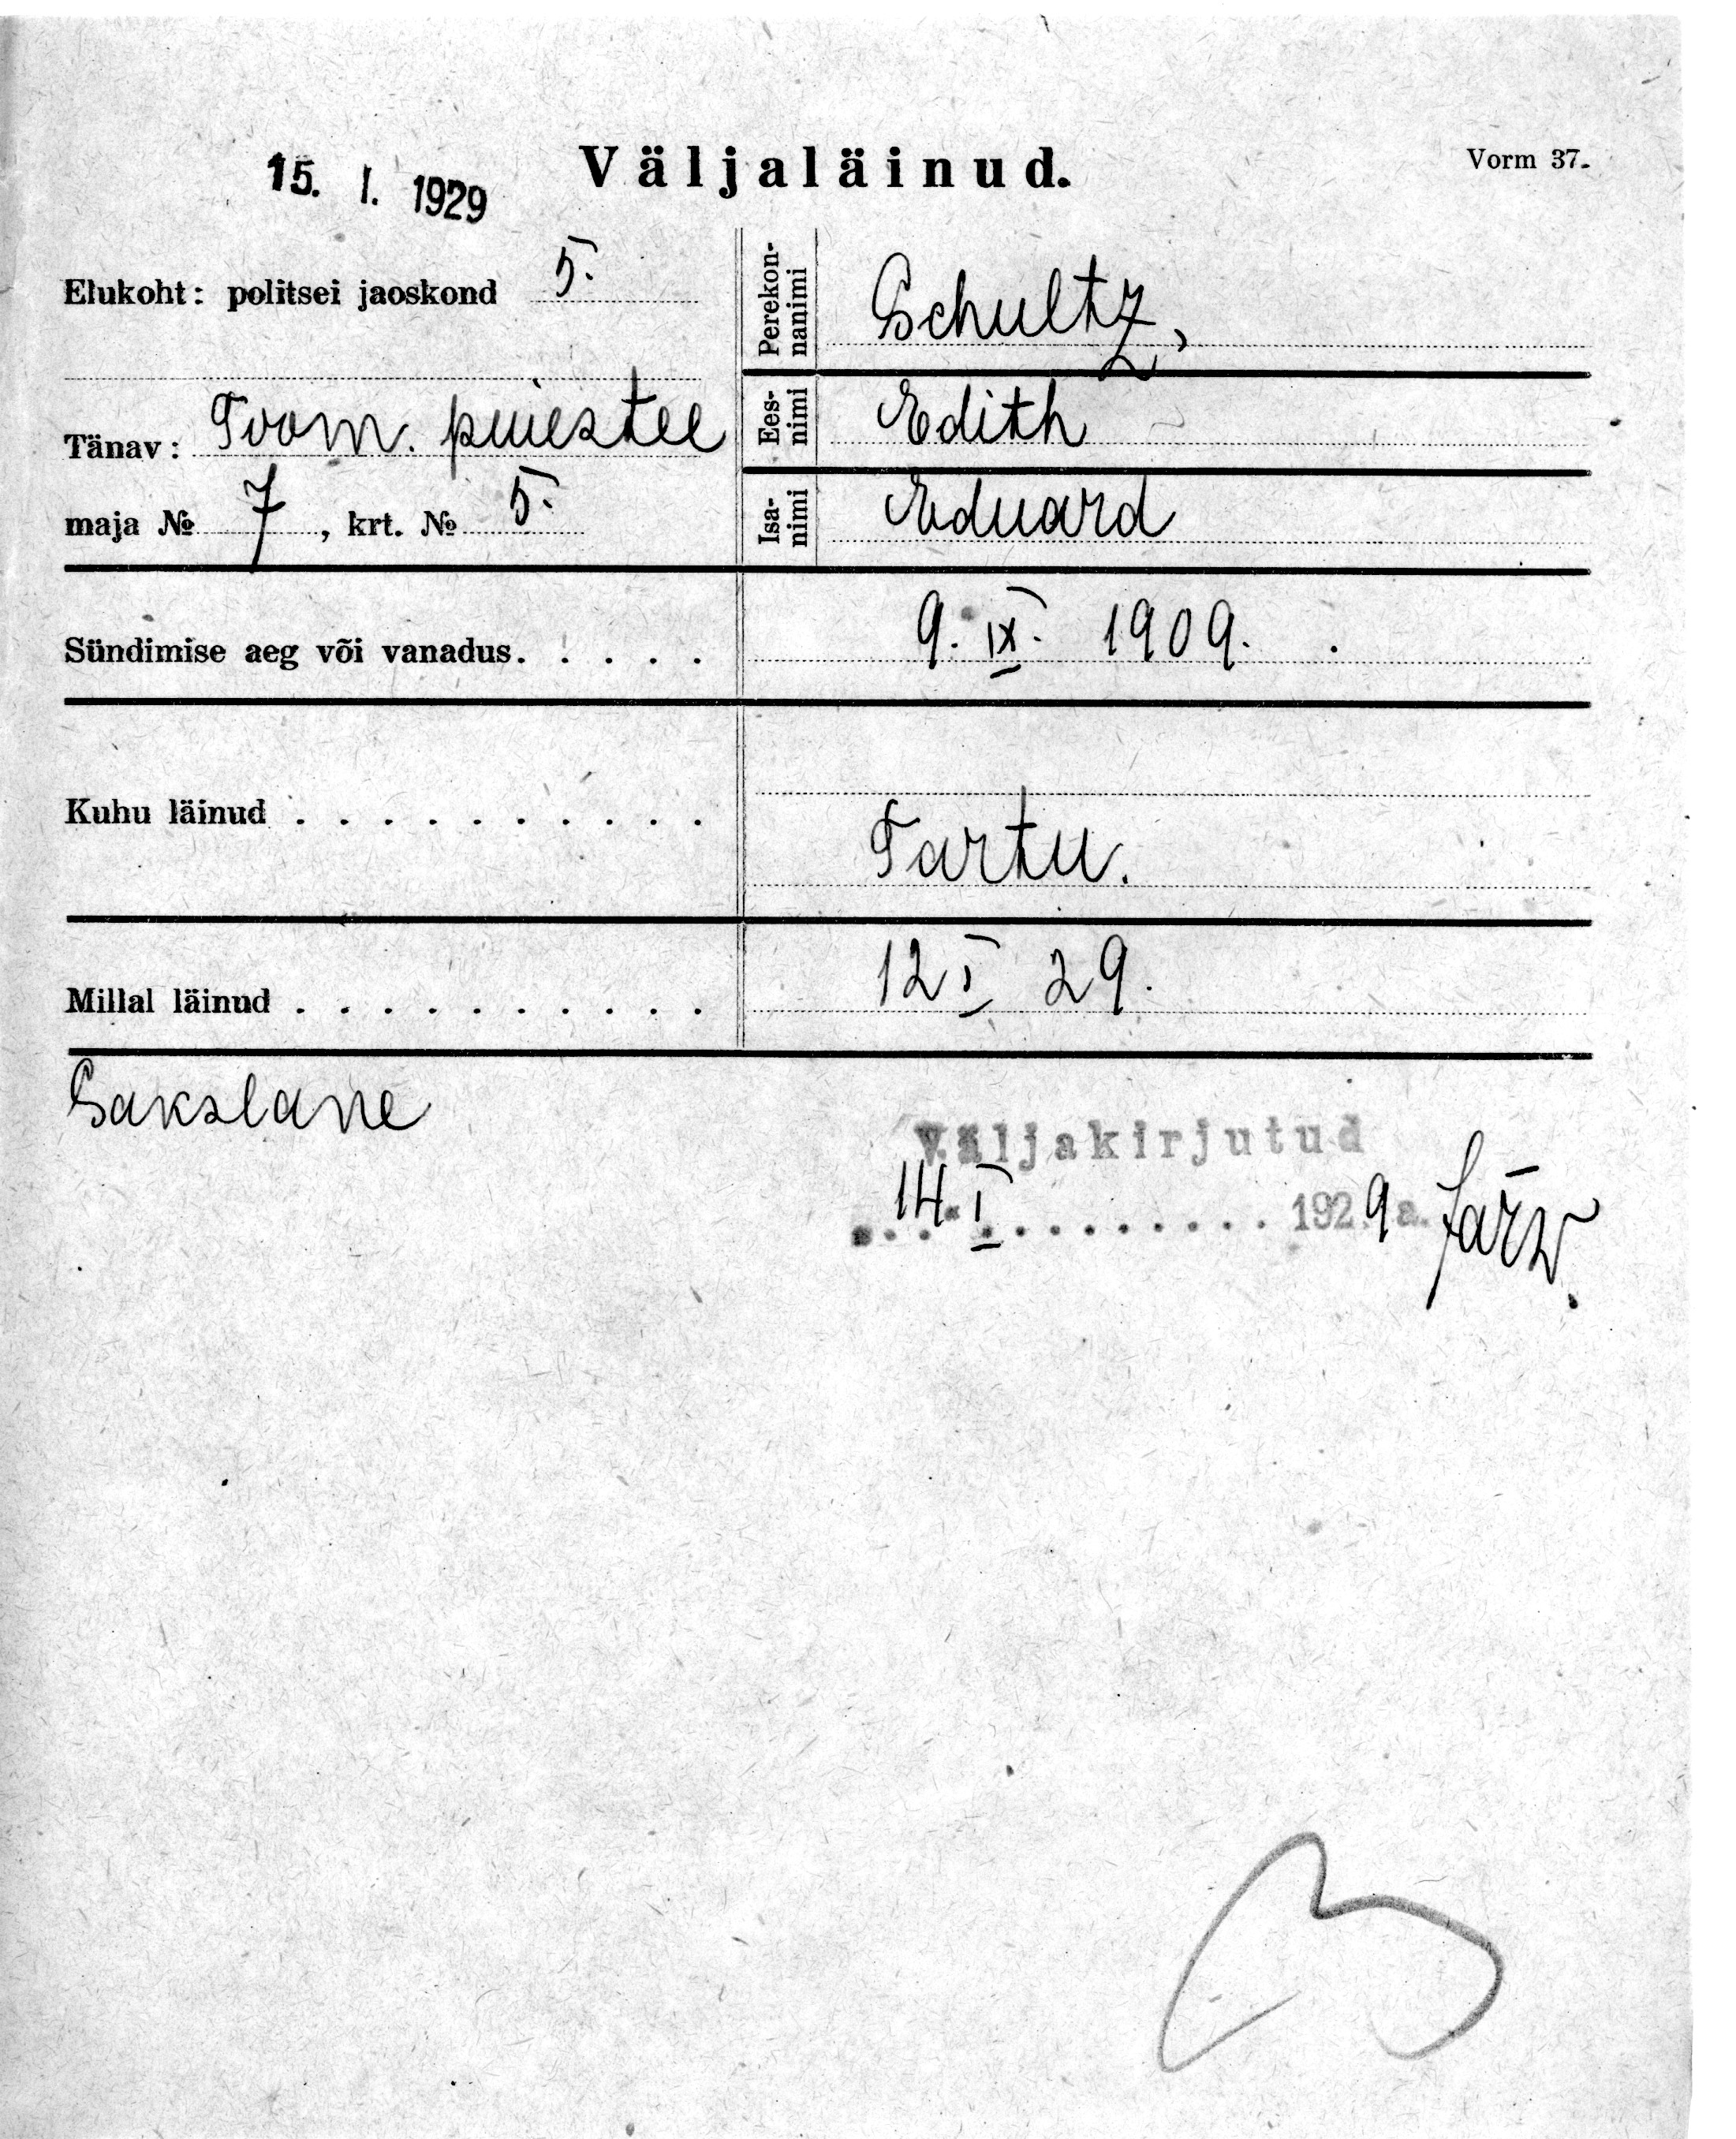 15. I. 1929
Väljaläinud.
Vorm 37.
Elukoht: politsei jaoskond 5.
Tänav: Toom. puiestee
maja № 7, krt. № 5.
Perekon-
nanimi
Schultz,
Ees-
nimi
Edith
Isa-
nimi
Eduard
Sündimise aeg või vanadus. . . . . 9. IX. 1909.
Kuhu läinud . . . . . . . . . . Tartu.
Millal läinud . . . . . . . . . . 12 I 29.
Sakslane
Väljakirjutud
14. I . . . . . . . . . 1929 a. Järw.